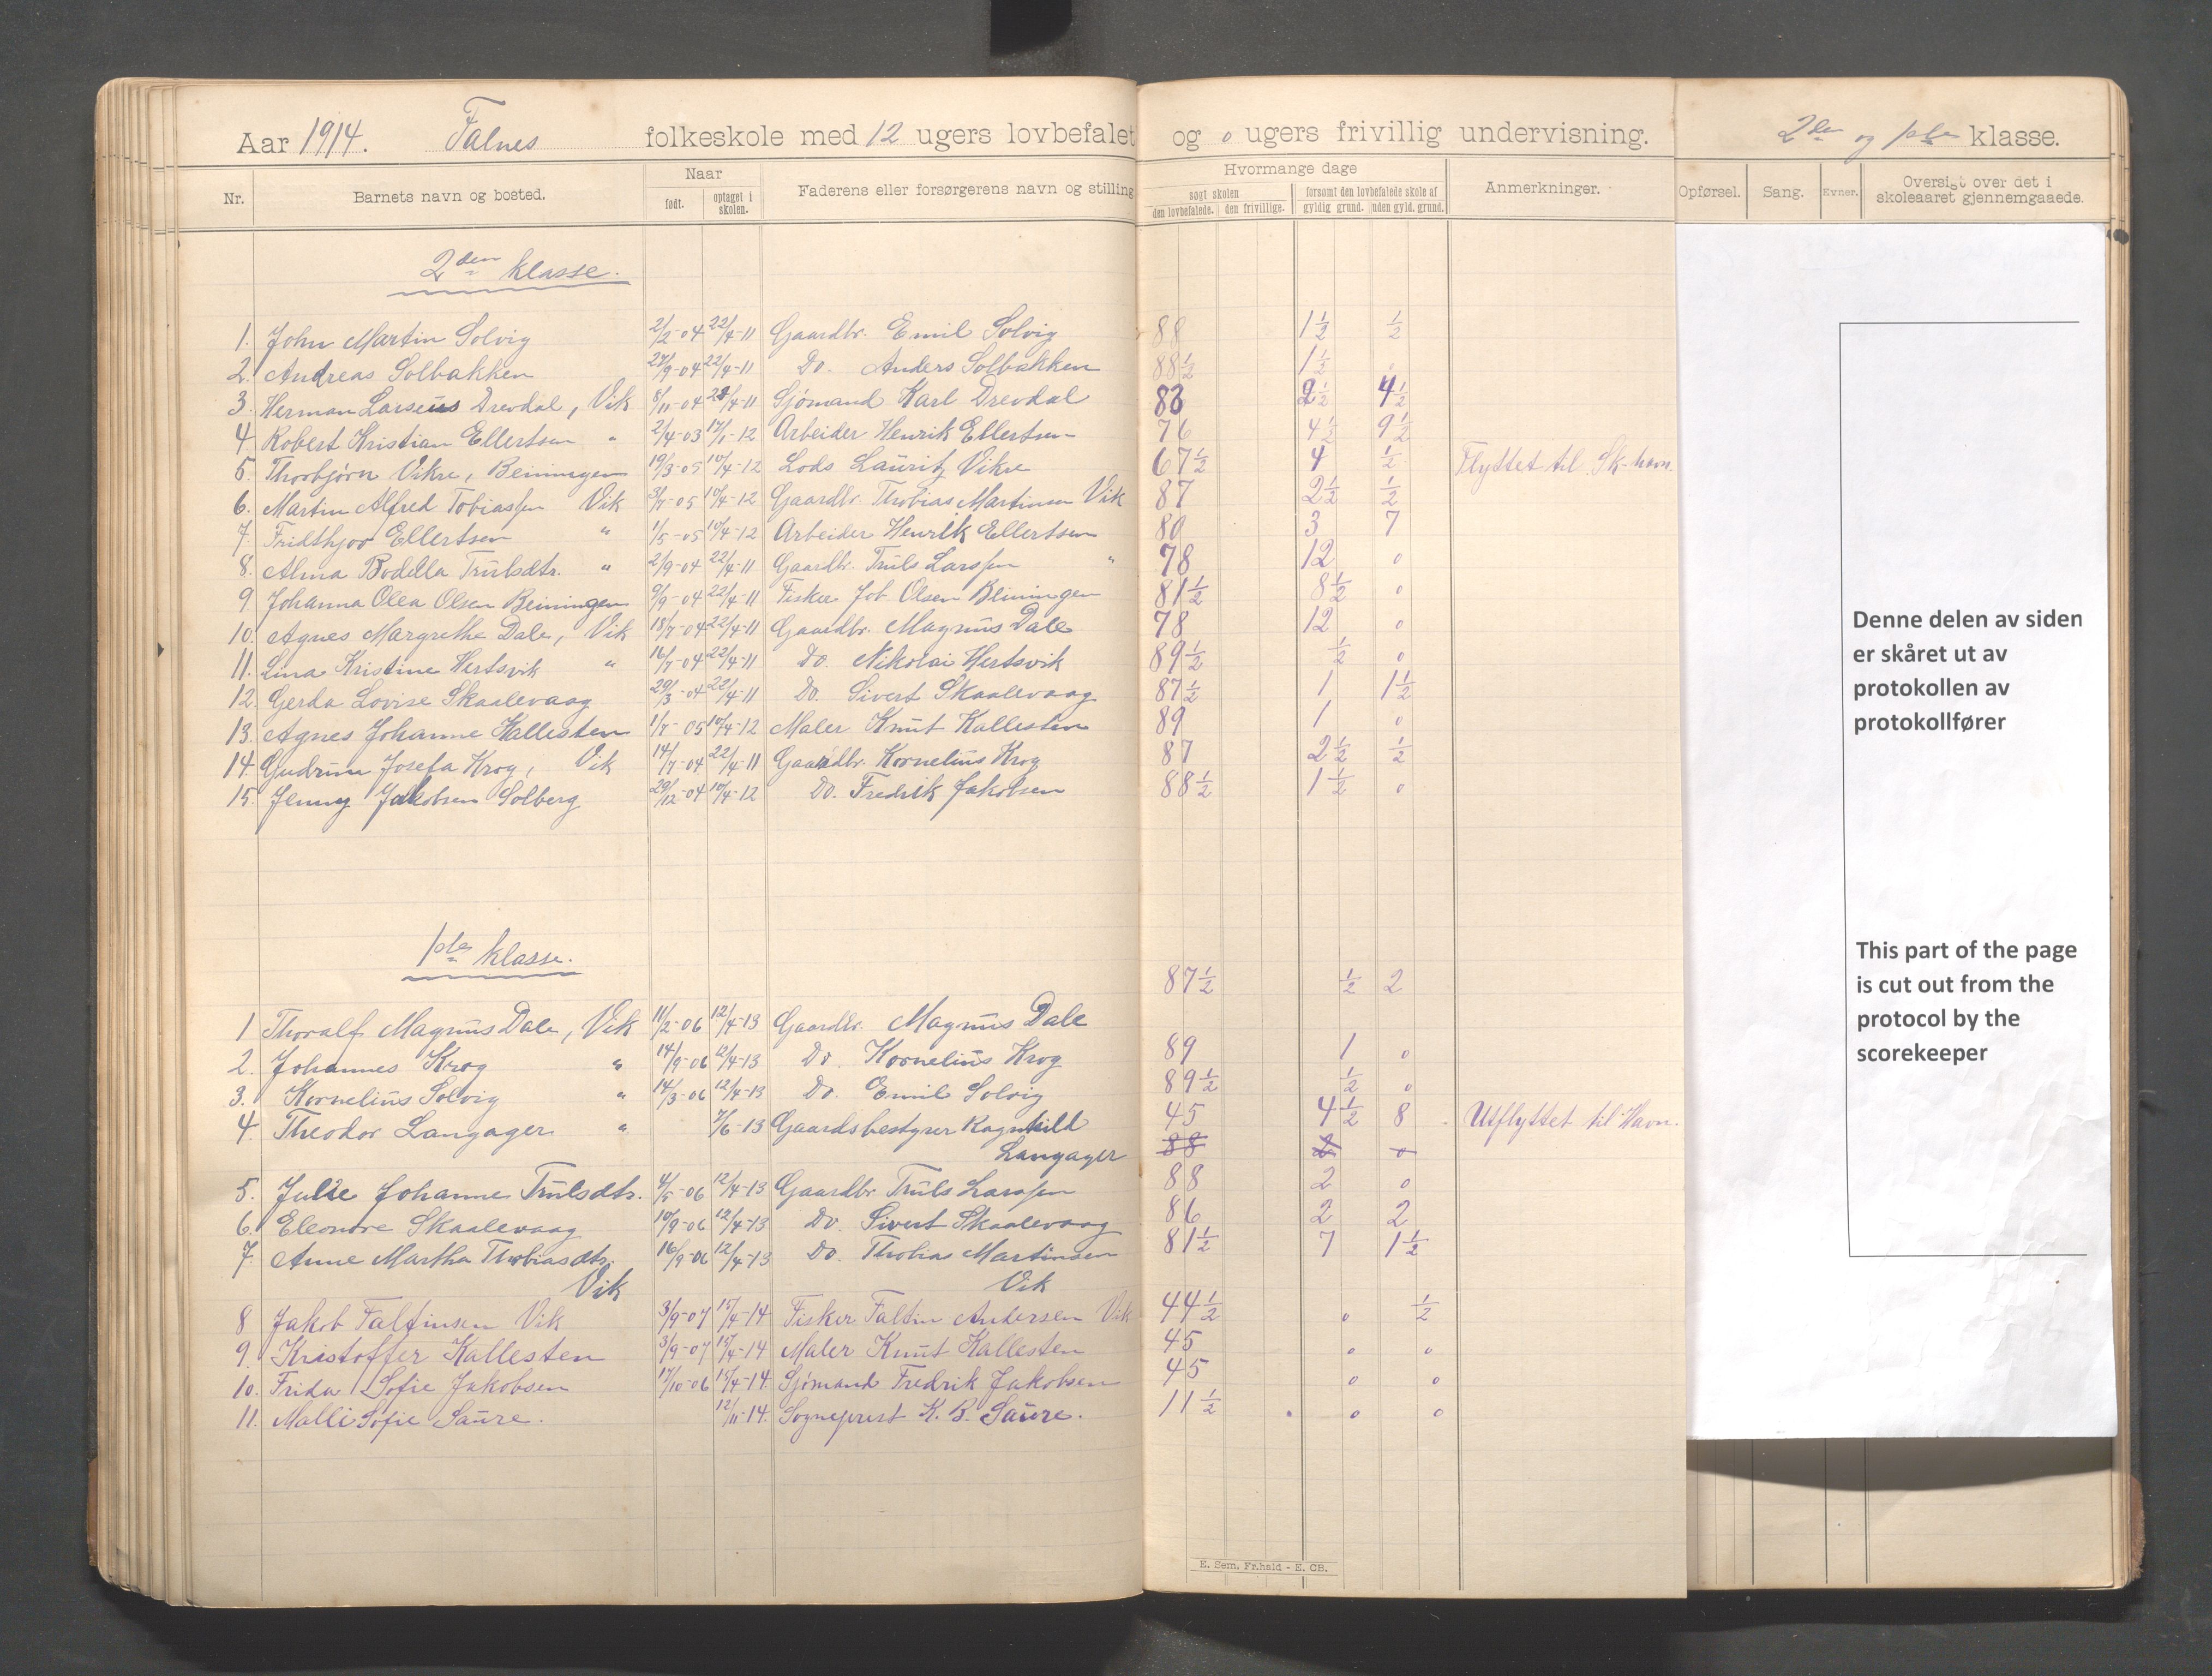 Aar 1914. Falnes folkeskole med 12 ugers lovbefalet og 0 ugers frivillig undervisning. 2den og 1ste klasse.
Nr. Barnets navn og bosted. Naar født. optaget i skolen. Faderens eller forsørgerens navn og stilling Hvormange dage søgt skolen den lovbefalede. den frivillige. forsømt den lovbefalede skole af gyldig grund. uden gyld. grund. Anmerkninger. Opførsel. Sang. Evner. Oversigt over det i skoleaaret gjennemgaaede.
2den klasse.
1. John Martin Solvig 2/2-04 22/4-11 Gaardbr. Emil Solvig 88 1½ ½
2. Andreas Solbakken 27/9-04 22/4-11 Do. Anders Solbakken 88½ 1½ 0
3. Herman Larseus Drevdal, Vik 8/11-04 22/4-11 Sjømand Karl Drevdal 83 2½ 4½
4. Robert Kristian Ellertsen " 2/4-03 17/1-12 Arbeider Henrik Ellertsen 76 4½ 9½
5. Thorbjørn Vikre, Beiningen 19/3-05 10/4-12 Lods Lauritz Vikre 67½ 4 ½ Flyttet til Sk-havn.
6. Martin Alfred Tobiassen Vik 3/7-05 10/4-12 Gaardbr. Thobias Martinsen Vik 87 2½ ½
7. Fridthjov Ellertsen " 1/5-05 10/4-12 Arbeider Henrik Ellertsen 80 3 7
8. Alma Bodella Trulsdtr. " 2/9-04 22/4-11 Gaardbr. Truls Larssen " 78 12 0
9. Johanna Olea Olsen Beiningen 9/9-04 22/4-11 Fisker Job Olsen Beiningen 81½ 8½ 0
10. Agnes Margrethe Dale, Vik 18/7-04 22/4-11 Gaardbr. Magnus Dale 78 12 0
11. Lina Kristine Hertsvik " 16/7-04 22/4-11 Do. Nikolai Hertsvik 89½ ½ 0
12. Gerda Lovise Skaalevaag 29/3-04 22/4-11 Do. Sivert Skaalevaag 87½ 1 1½
13. Agnes Johanne Kallesten 1/7-05 10/4-12 Maler Knut Kallesten 89 1 0
14. Gudrun Josefa Krog, Vik 14/7-04 22/4-11 Gaardbr. Kornelius Krog 87 2½ ½
15. Jenny Jakobsen Solberg 29/12-04 10/4-12 Do. Fredrik Jakobsen 88½ 1½ 0
1ste klasse.
1 Thoralf Magnus Dale, Vik 11/2-06 12/4-13 Gaardbr. Magnus Dale 87½ ½ 2
2. Johannes Krog " 14/9-06 12/4-13 Do. Kornelius Krog 89 1 0
3. Kornelius Solvig " 14/3-06 12/4-13 Do. Emil Solvig 89½ ½ 0
4. Theodor Langager " 7/6-13 Gaardsbestyrer Ragnhild 45 4½ 8 Utflyttet til Havn.
Langager 88 2 0
5. Julie Johanne Trulsdtr. 4/5-06 12/4-13 Gaardbr. Truls Larssen 88 2 0
6. Eleonore Skaalevaag 10/9-06 12/4-13 Do. Sivert Skaalevaag 86 2 2
7. Anne Martha Thobiasdtr. 16/9-06 12/4-13 Do. Thobias Martinsen 81½ 7 1½
Vik Vik
8 Jakob Faltinsen Vik 3/9-07 15/4-14 Fisker Faltin Andersen Vik 44½ 0 ½
9. Kristoffer Kallesten 3/9-07 15/4-14 Maler Knut Kallesten 45 0 0
10. Frida Sofie Jakobsen 17/10-06 15/4-14 Sjømand Fredrik Jakobsen 45 0 0
11. Malli Sofie Saure. 12/11-14. Sogneprest K. B. Saure. 11½ 0 0
E. Sem, Fr.hald - E. CB.
Denne delen av siden
er skåret ut av
protokollen av
protokollfører
This part of the page
is cut out from the
protocol by the
scorekeeper